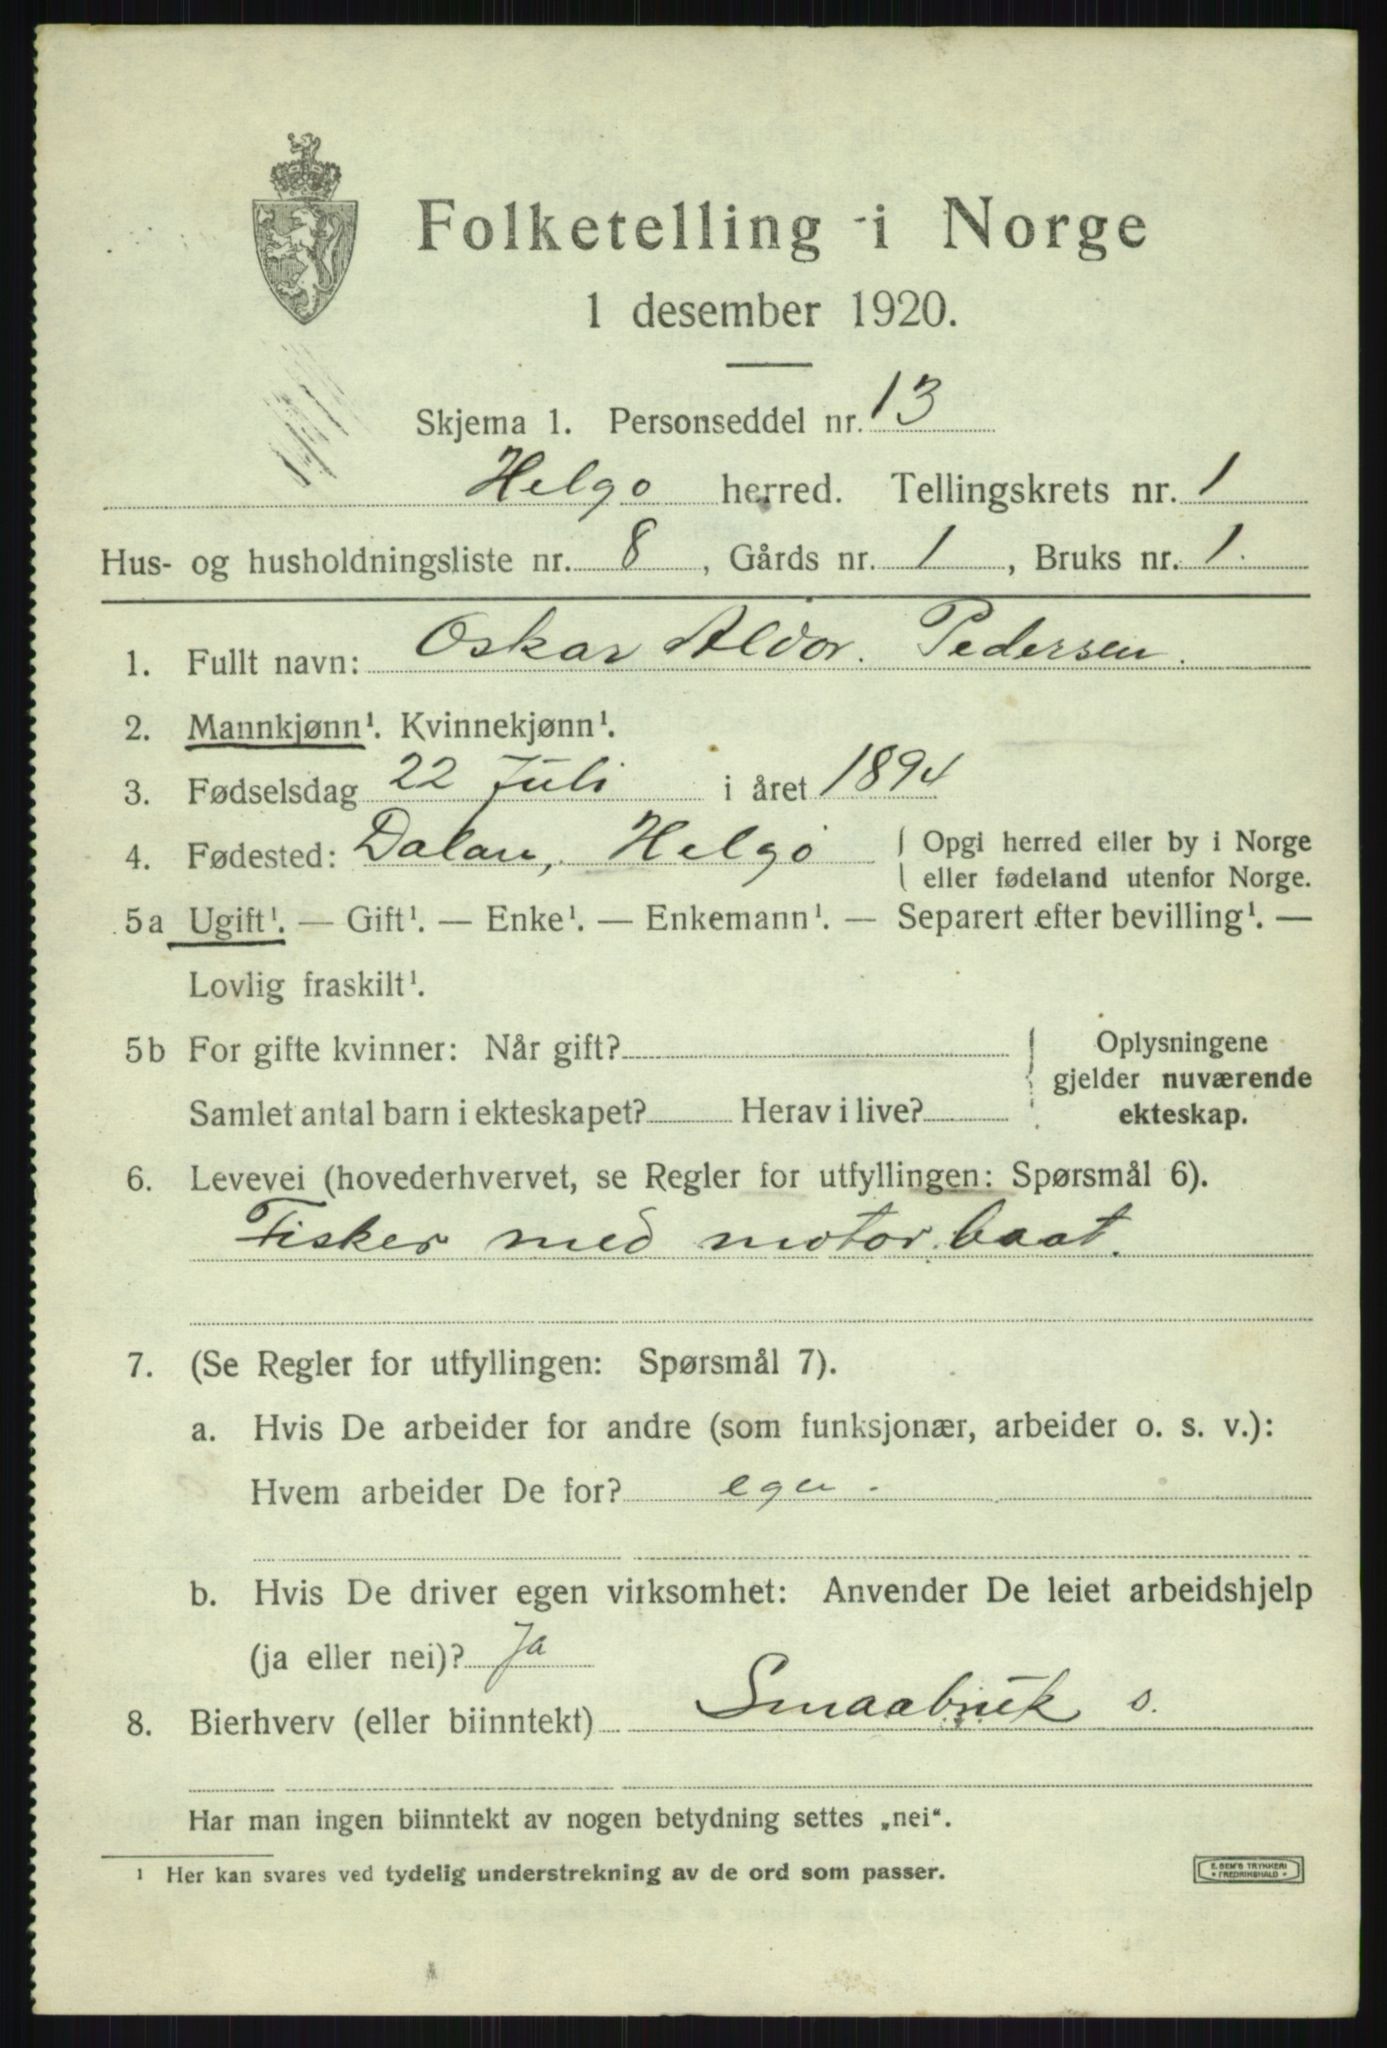 Folketelling i Norge
1 desember 1920.
Skjema 1. Personseddel nr. 13
Helgø herred. Tellingskrets nr. 1
Hus- og husholdningsliste nr. 8, Gårds nr. 1, Bruks nr. 1.
1. Fullt navn: Oskar Aldor. Pedersen.
2. Mannkjønn¹. Kvinnekjønn¹.
3. Fødselsdag 22 Juli i året 1894
4. Fødested: Dalan, Helgø { Opgi herred eller by i Norge
eller fødeland utenfor Norge.
5a Ugift¹. — Gift¹. — Enke¹. — Enkemann¹. — Separert efter bevilling¹. —
Lovlig fraskilt¹.
5b For gifte kvinner: Når gift?
Samlet antal barn i ekteskapet? Herav i live?
{ Oplysningene
gjelder nuværende
ekteskap.
6. Levevei (hovederhvervet, se Regler for utfyllingen: Spørsmål 6).
Fisker med motor baat.
7. (Se Regler for utfyllingen: Spørsmål 7).
a. Hvis De arbeider for andre (som funksjonær, arbeider o. s. v.):
Hvem arbeider De for? egen.
b. Hvis De driver egen virksomhet: Anvender De leiet arbeidshjelp
(ja eller nei)? Ja
8. Bierhverv (eller biinntekt) Smaabruk s.
Har man ingen biinntekt av nogen betydning settes „nei“.
¹ Her kan svares ved tydelig understrekning av de ord som passer.
E. SEM'S TRYKKERI
FREDRIKSHALD